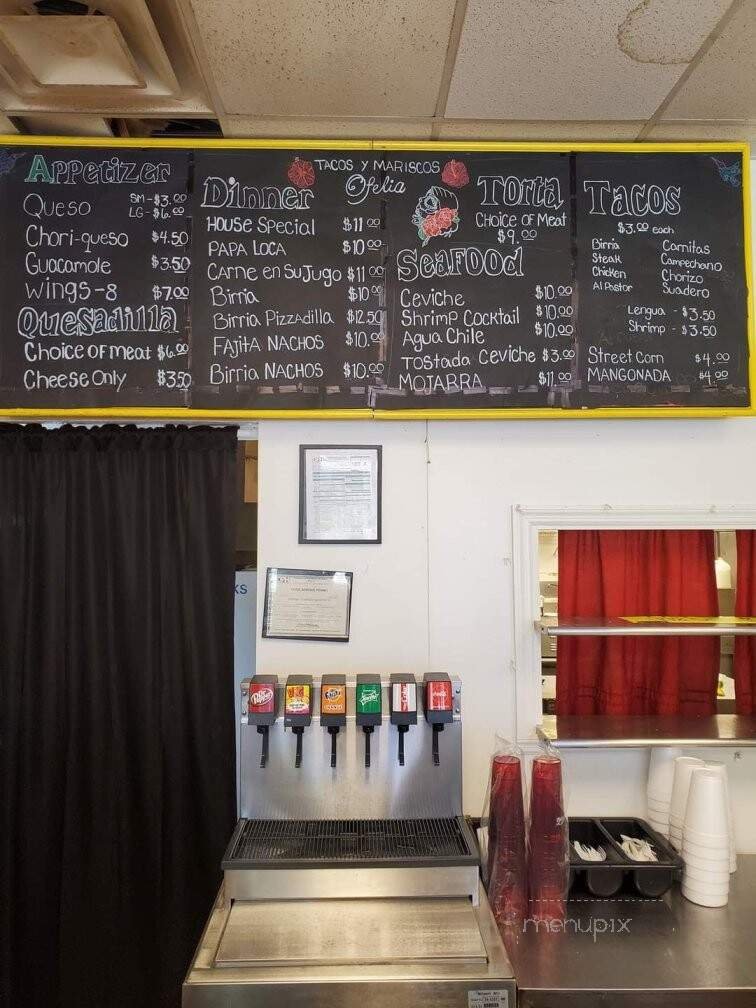 Appetizer
Queso SM-$3.00
LG-$6.00
Chori-queso $4.50
Guacamole $3.50
Wings-8 $7.00
Quesadilla
Choice of meat $6.00
Cheese Only $3.50
TACOS Y MARISCOS
Ofelia
Dinner
House Special $11.00
PAPA LOCA $10.00
Carne en Su Jugo $11.00
Birria $10.00
Birria Pizzadilla $12.50
Fajita NACHOS $10.00
Birria NACHOS $10.00
Torta
CHOICE OF Meat
$9.00
Seafood
Ceviche $10.00
Shrimp Cocktail $10.00
Agua Chile $10.00
TOSTADA Ceviche $3.00
MOJARRA $11.00
Tacos
$3.00 each
Birria Carnitas
Steak Campechano
Chicken Chorizo
Al Pastor Suadero
Lengua - $3.50
Shrimp - $3.50
Street Corn $4.00
MANGONADA $4.00
KS
Dr Pepper
Fanta
ORANGE
Coke
menupix